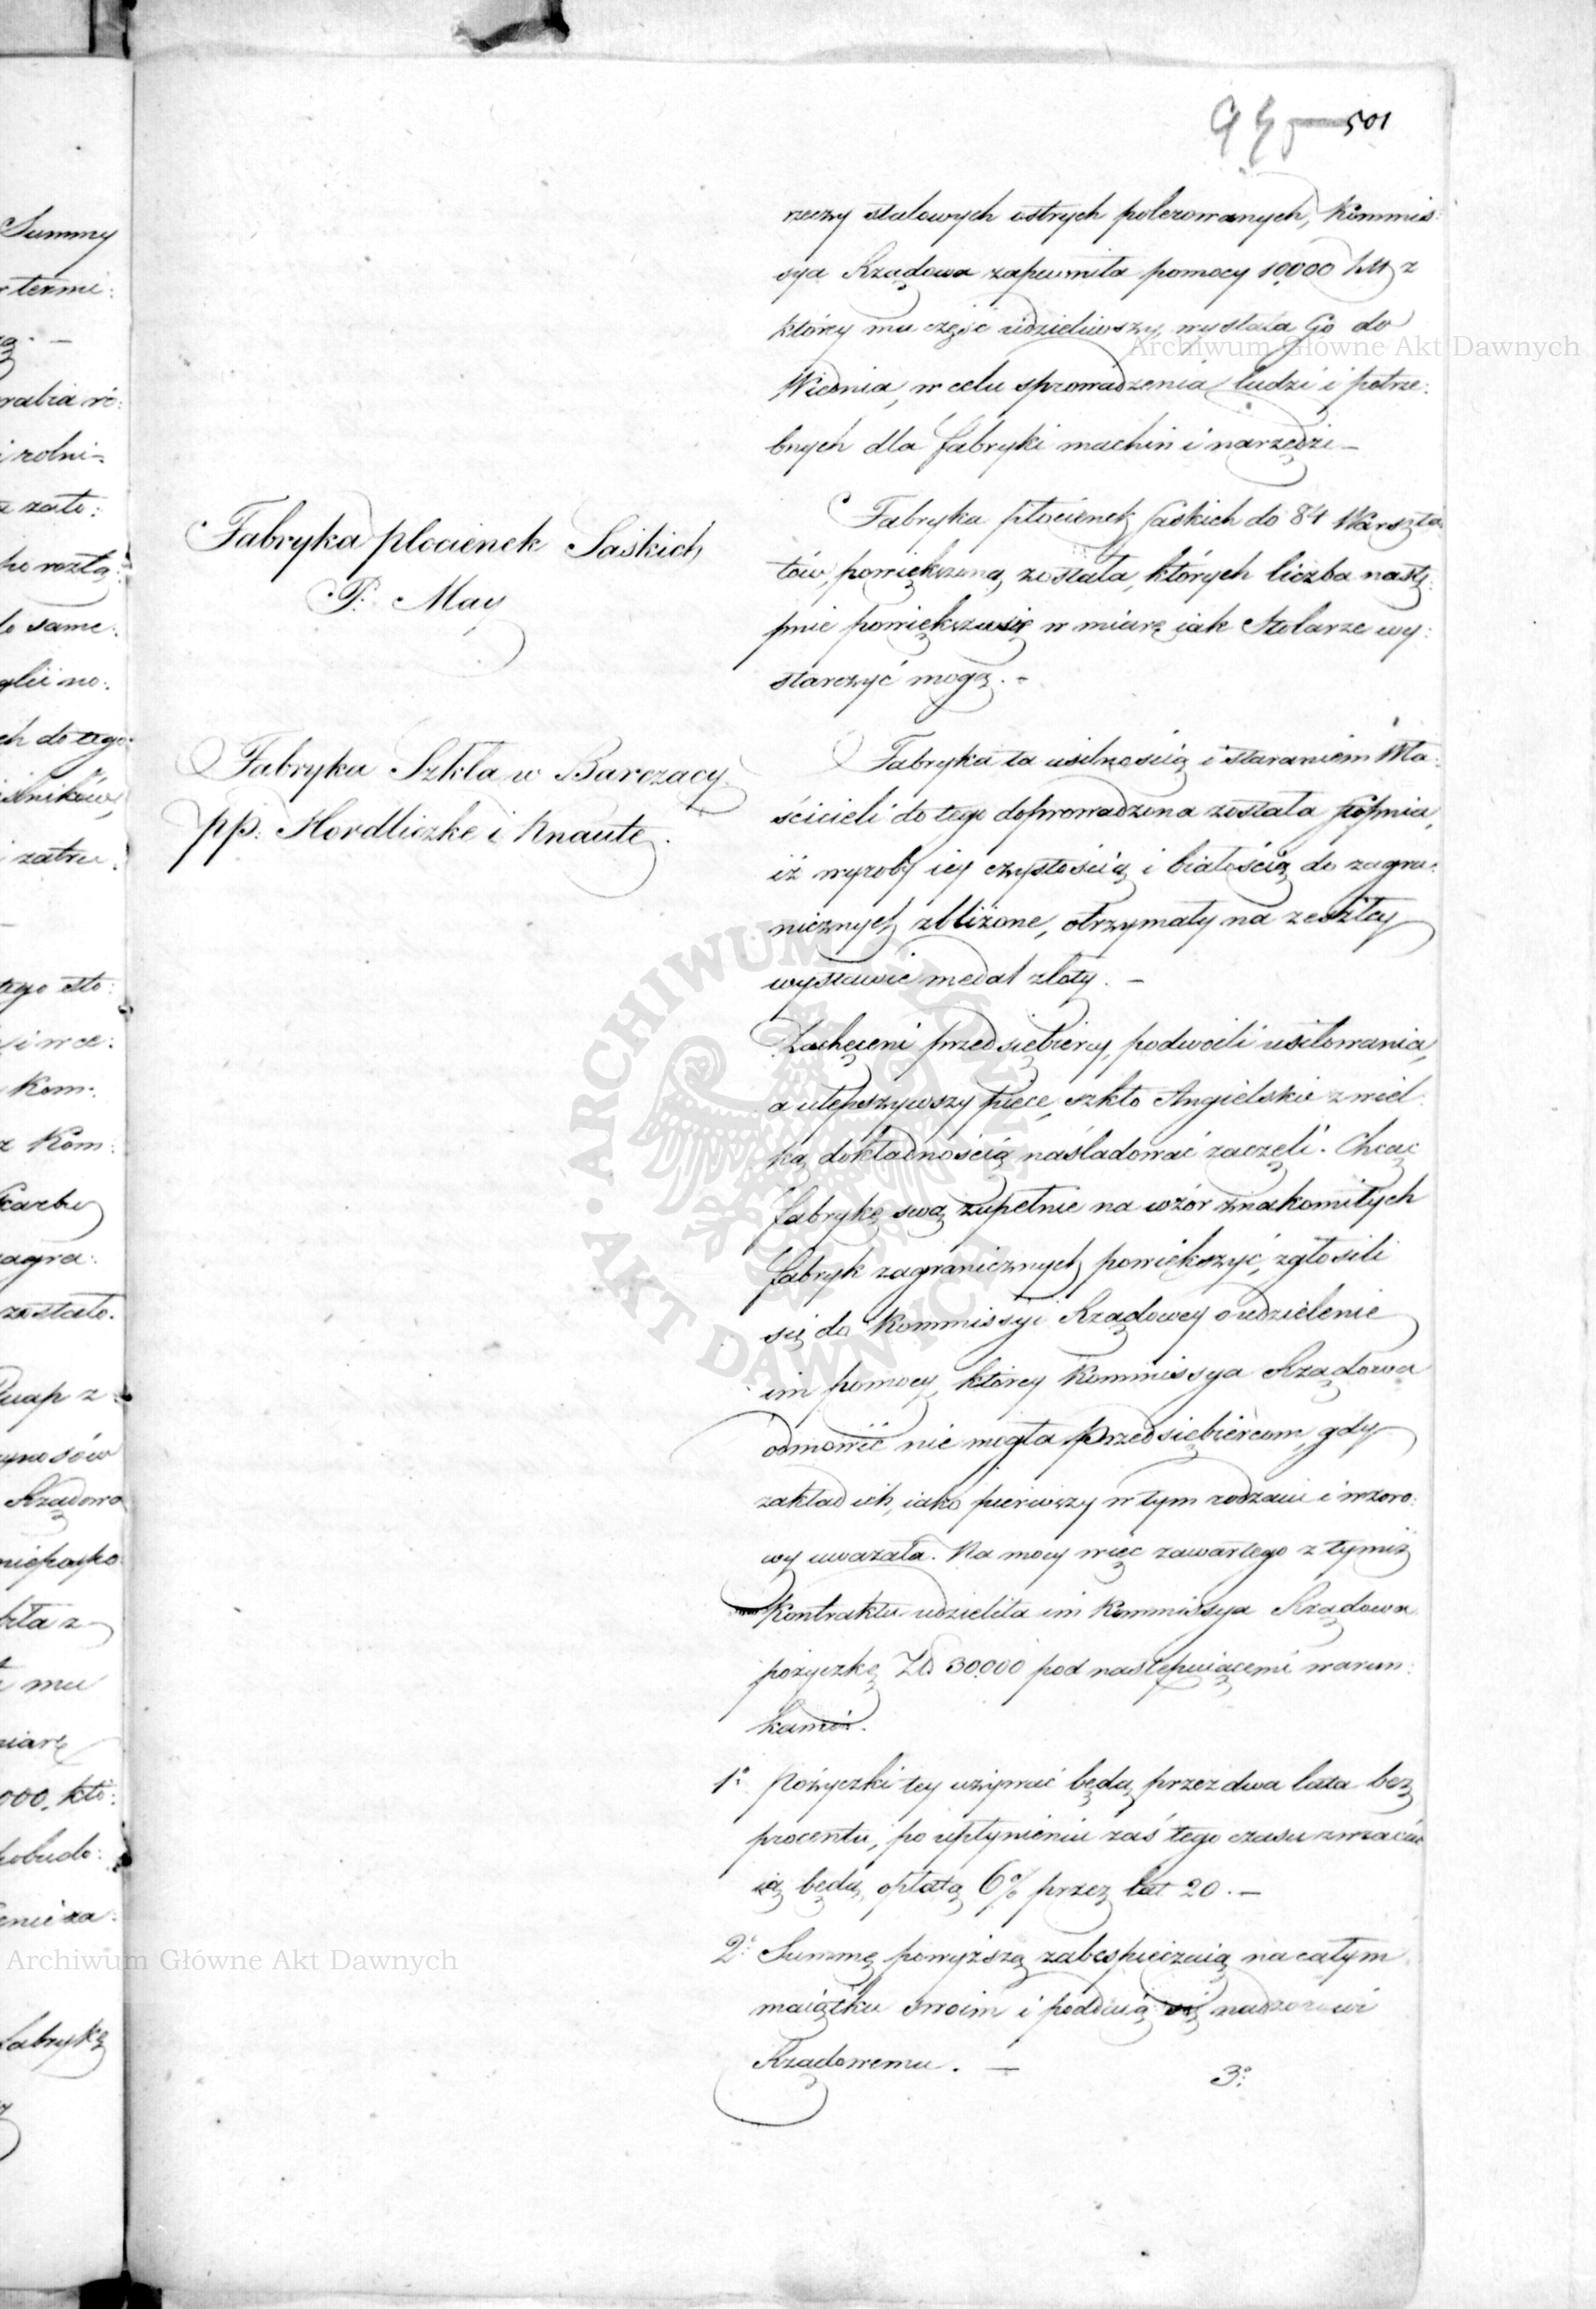 501
rzeczy stalowych ostrych polerowanych, Kommis:
sya Rządowa zapewniła pomocy 10,000 z
któréy mu część udzieliwszy, wysłała Go do
Wiednia, w celu sprowadzenia ludzi i potrze:
bnych dla fabryki machin i narzędzi –
Fabryka płocienek Saskich
P. May
Fabryka płocienek Saskich do 84 Warszta:
tów powiększoną została, których liczba nastę:
pnie powiększa się w miarę iak Stolarze wy:
starczyć mogą. –
Fabryka Szkła w Barczacy
pp. Hordliczke i Knaute.
Fabryka ta usilnością i staraniem Wła:
ścicieli do tego doprowadzona została stopnia,
iż wyroby iey czystością i białością do zagra:
nicznych zbliżone, otrzymały na zeszłey
wystawie medal złoty. –
Zachęceni przedsiębiercy, podwoili usiłowania,
a ulepszywszy piece, szkło Angielskie z wiel
ką dokładnością naśladować zaczęli. Chcąc
fabrykę swą zupełnie na wzór znakomitych
fabryk zagranicznych powiększyć, zgłosili
się do Kommissyi Rządowey o udzielenie
im pomocy, którey Kommissya Rządowa
odmówić nie mogła Przedsiębiercom, gdy
zakład ich, iako pierwszy w tym rodzaiu i wzoro:
wy uważała. Na mocy więc zawartego z tymiż
Kontraktu udzieliła im Kommissya Rządowa
pożyczkę Zł 30.000 pod następuiącemi warun:
kami.
1º Pożyczki tey używać będą przez dwa lata bez
procentu, po upłynieniu zaś tego czasu zwracać
ią będą opłatą 6% przez lat 20. –
2º Summę powyższą zabespieczaią na całym
maiątku swoim i poddaią się nadzorowi
Rządowemu. –
3º
Summy
termi:
rolni=
zało:
same:
no:
Kom:
z Kom:
zagra:
zostało.
mu
000, kto:
fabrykę
Archiwum Główne Akt Dawnych
ARCHIWUM GŁÓWNE AKT DAWNYCH
Archiwum Główne Akt Dawnych